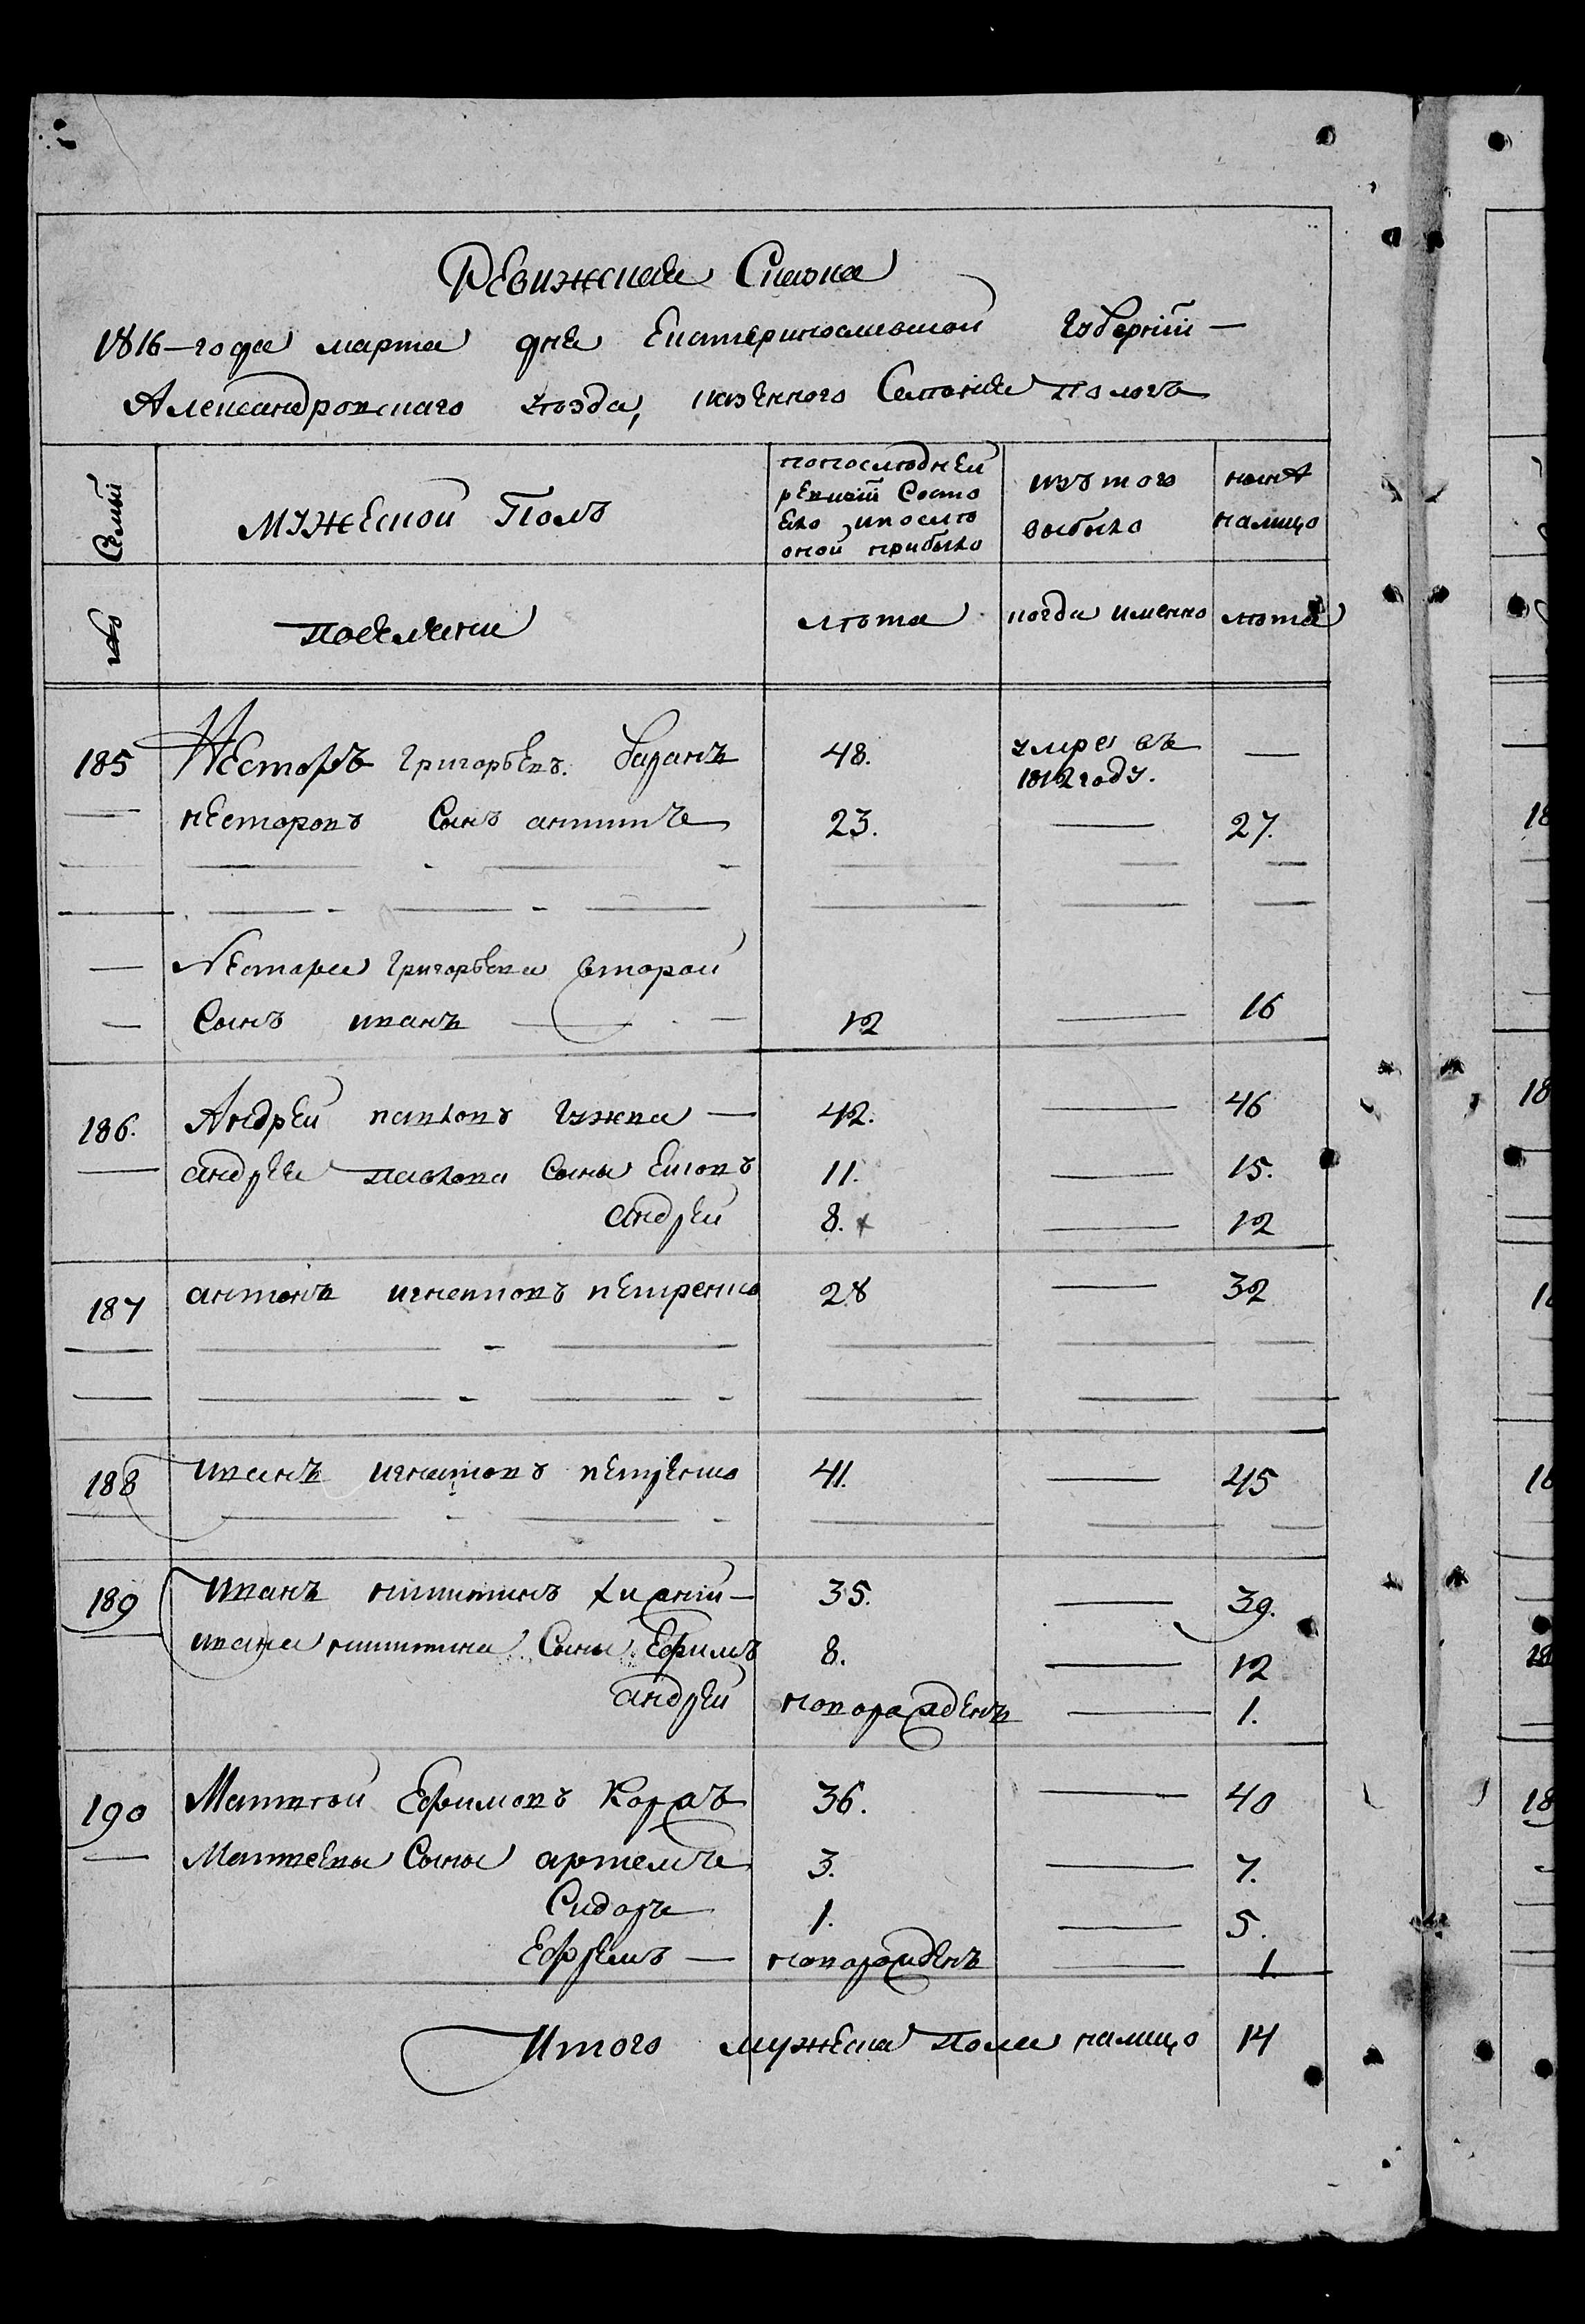 Ревижская Сказка
1816-года марта дня Екатеринославской губернїи —
Александровскаго уѣзда, казенного Селения Пологъ
Семьи
мужеской Полъ
попоследней ревизїи Состояло ипослѣ оной прибыло
изъ того выбыло
ныня налицо
№
поселяни
лѣта
когда именно
лѣта
185 Несторъ григорьевъ. Баранъ 48. умре въ 1812 году. —
— несторовъ Сынъ антипъ 23. — 27.
— Нестора григорьева второй
— Сынъ иванъ — 12 — 16
186. Андрей павловъ гужва — 42. — 46
— андрея павлова Сыны Емонъ 11. — 15.
андрей 8. х — 12
187 антонъ игнатовъ петренко 28 — 32
188 иванъ игнатовъ петренко 41. — 45
189 иванъ никитинъ — 35. — 39.
ивана никитина Сыны Ефимъ 8. — 12
андрей новорожденъ — 1.
190 Матвѣй Ефимовъ Коржъ 36. — 40
— Матвеева Сыны артемъ 3. — 7.
Сидоръ 1. — 5.
Ефремъ — новорожденъ — 1.
Итого мужеска пола налицо 14